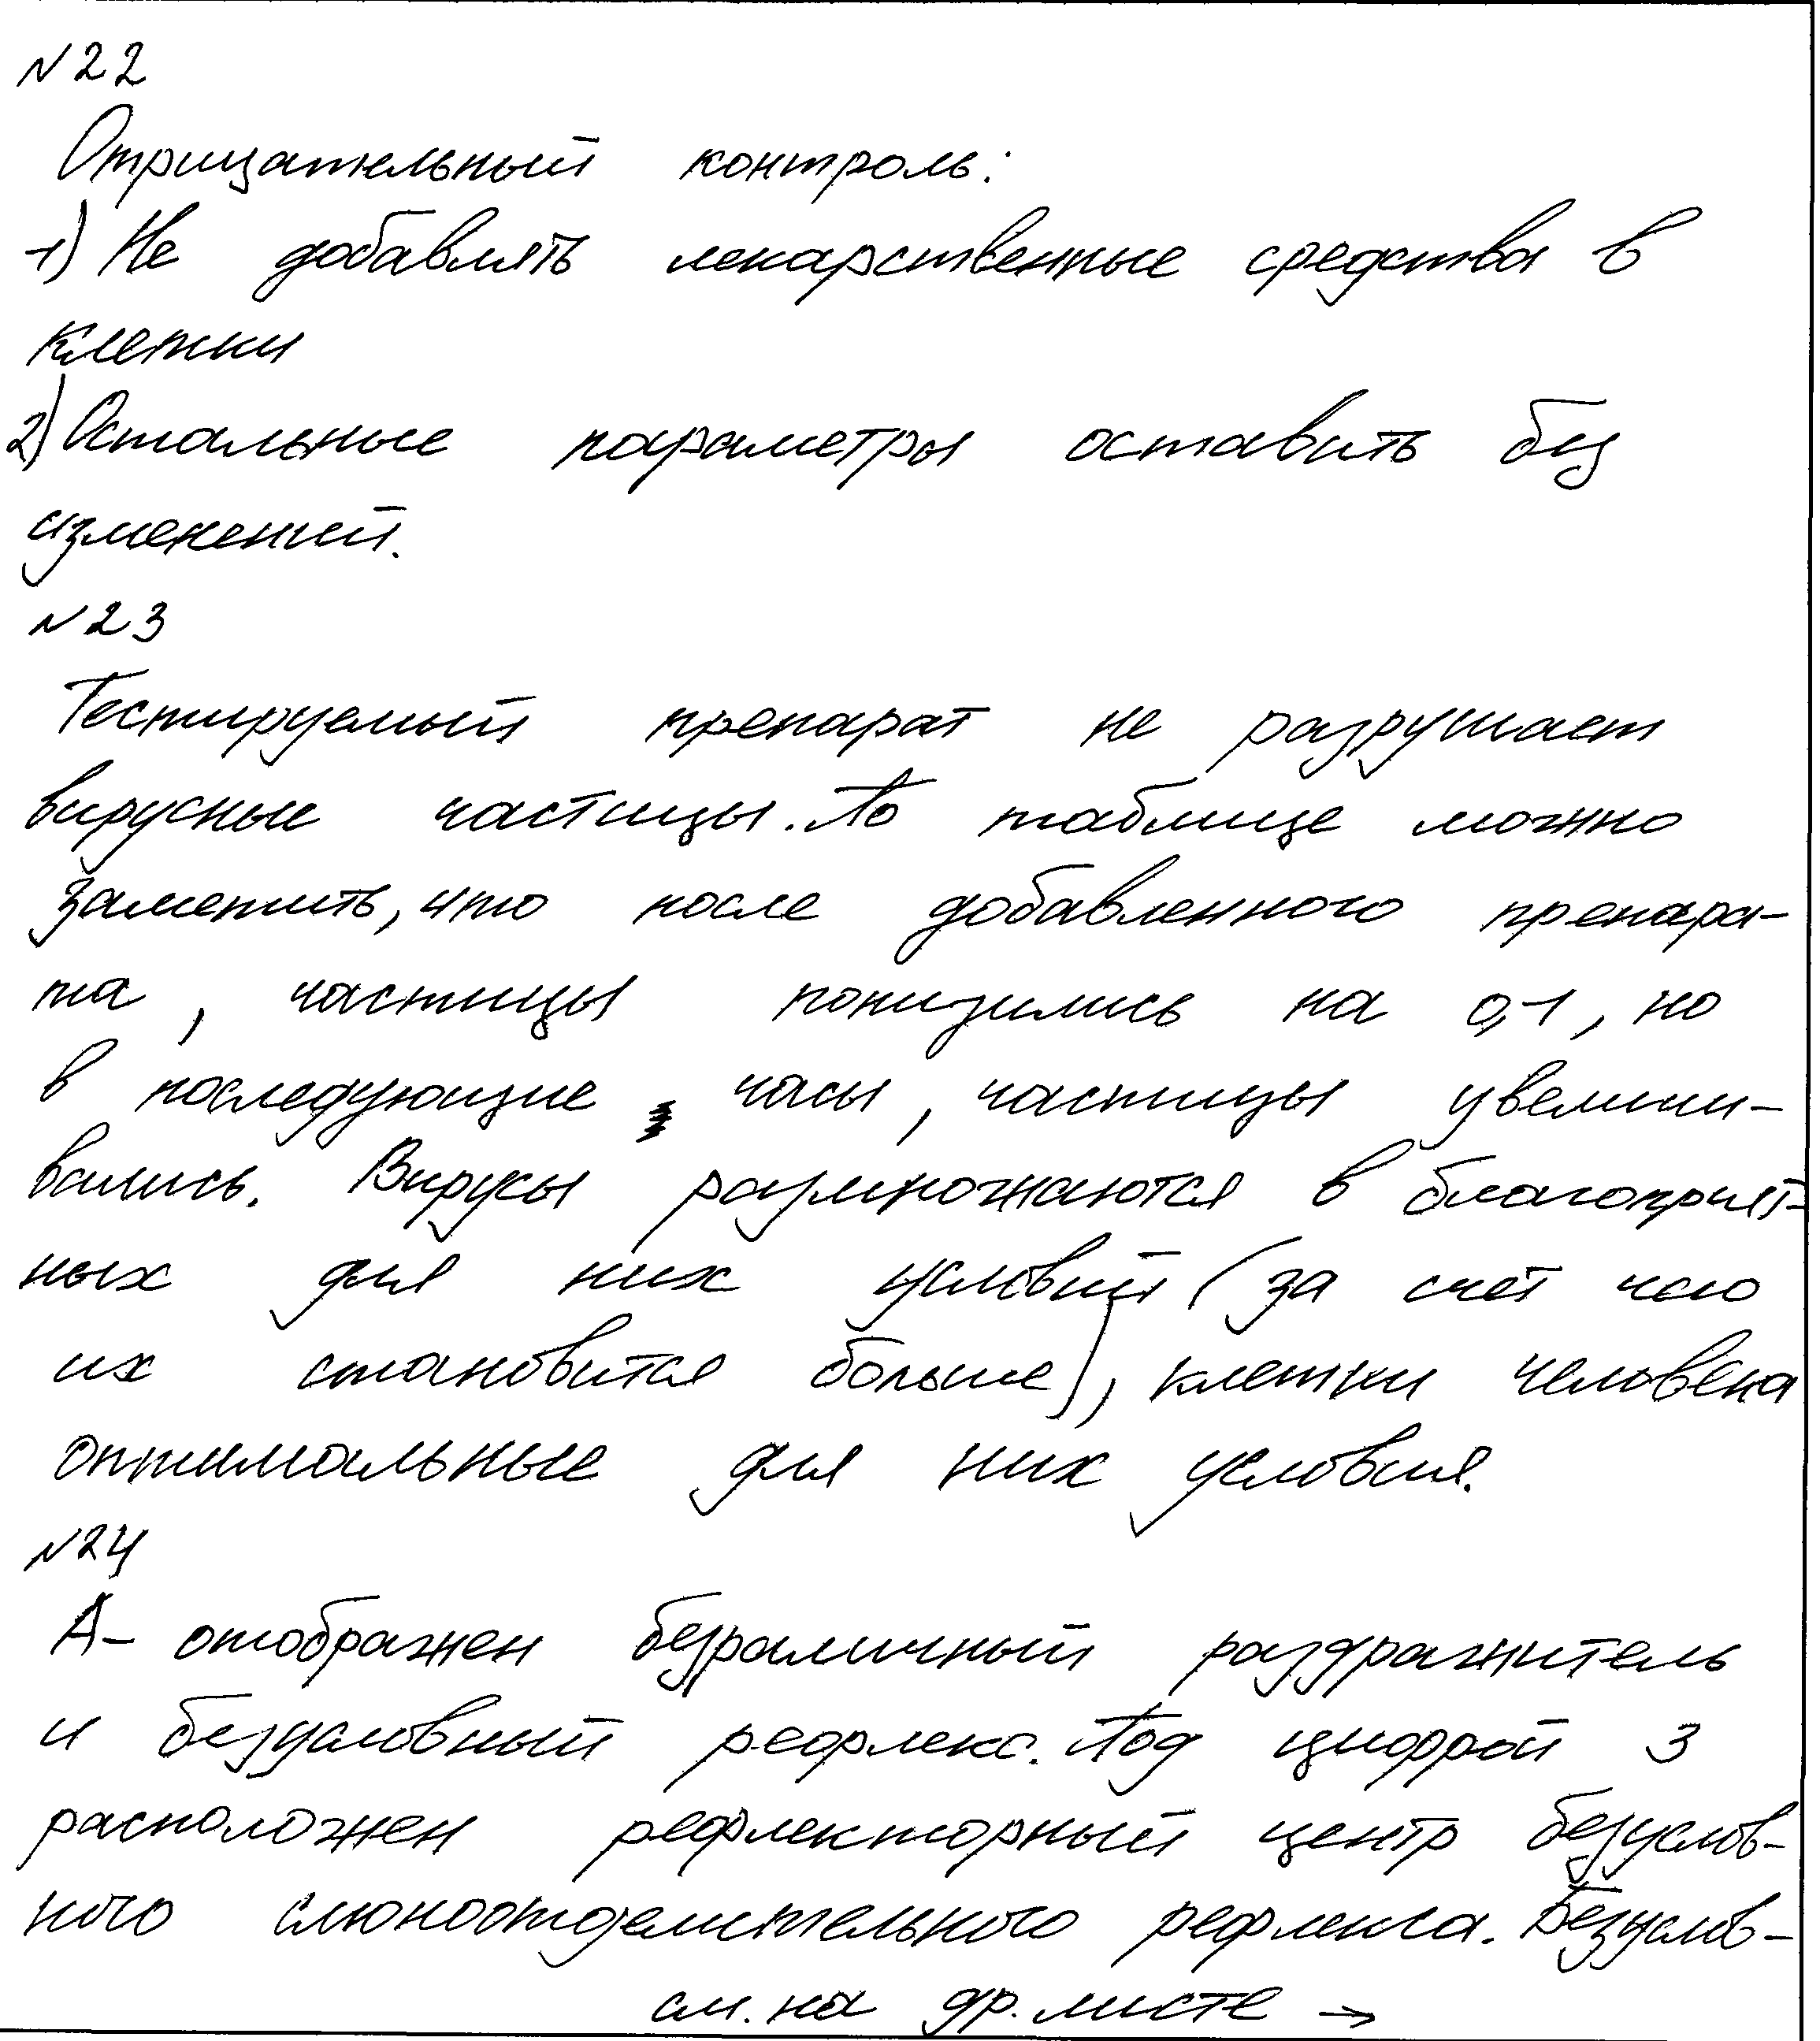 №22
Отрицательный контроль:
1) Не добавлять лекарственные средства в
клетки
2) Остальные параметры оставить без
изменений.
№23
Тестируемый препарат не разрушает
вирусные частицы. По таблице можно
заметить, что после добавленного препара-
та, частицы понизились на 0,1, но
в последующие часы, частицы увеличи-
вались. Вирусы размножаются в благоприят-
ных для них условий (за счет чего
их становится больше), клетки человека
оптимальные для них условия.
№24
А- отображен безразличный раздражитель
и безусловный рефлекс. Под цифрой 3
расположен рефлекторный центр безуслов-
ного слюноотделительного рефлекса. Безуслов-
см. на др. листе →